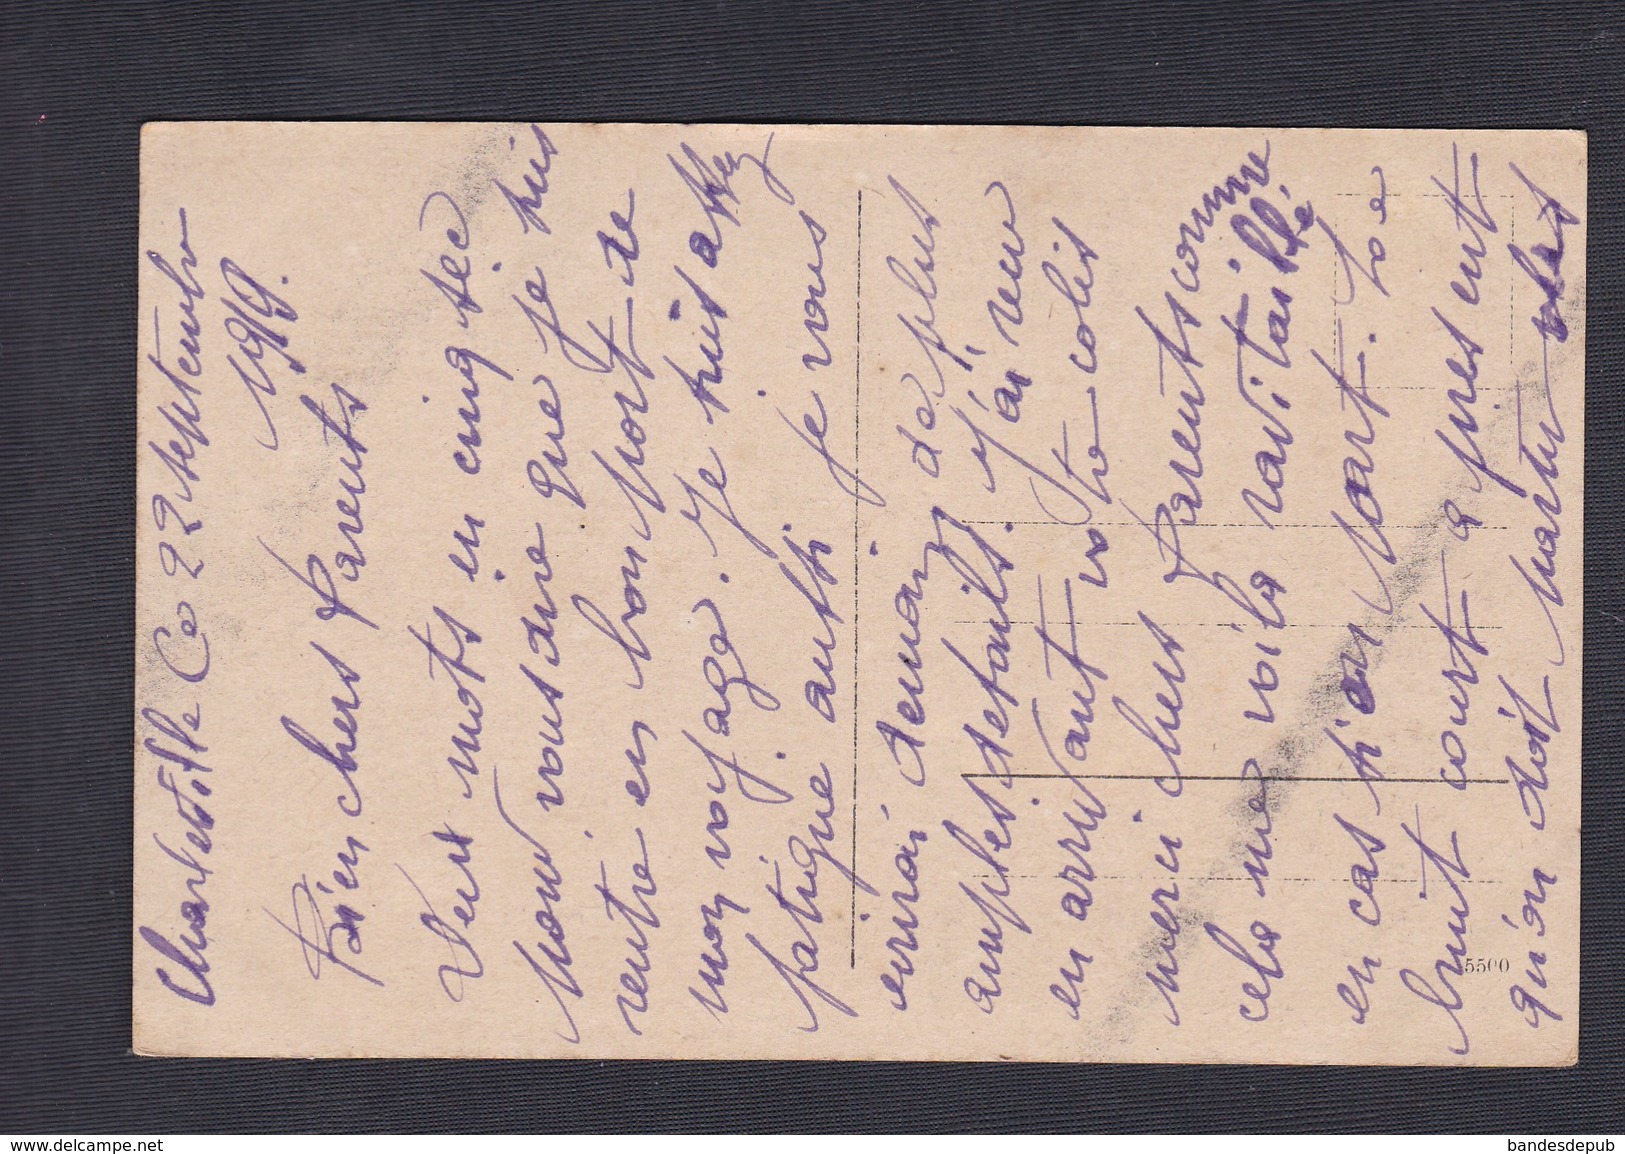 Charleville Ce 22 septembre
1919.
Bien chers Parents
Deux mots en cinq sec
pour vous dire que je suis
rentré en bon port de
mon voyage. Je suis assez
fatigué aussi je vous
enverrai demain de plus
amples details. J'ai reçu
en arrivant votre colis
merci chers Parents comme
cela me voila ravitaillé
en cas si on part. Le
bruit court a present
qu'on doit partir
5500
www.delcampe.net
bandesdepub